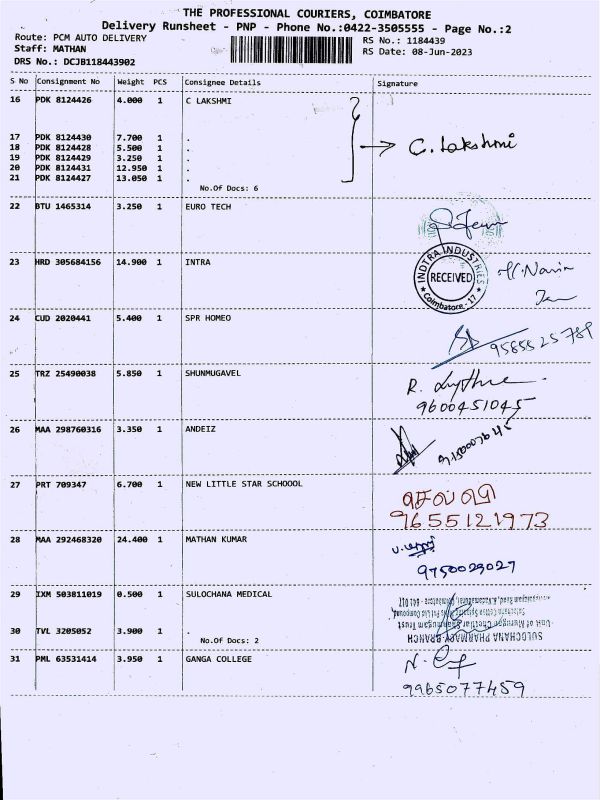 THE PROFESSIONAL COURIERS, COIMBATORE
Delivery Runsheet - PNP - Phone No.:0422-3505555 - Page No.:2
Route: PCM AUTO DELIVERY
RS No.: 1184439
Staff: MATHAN
RS Date: 08-Jun-2023
DRS No.: DCJB118443902
S No Consignment No Weight PCS Consignee Details Signature
16 PDK 8124426 4.000 1 C LAKSHMI
17 PDK 8124430 7.700 1 .
18 PDK 8124428 5.500 1 .
C. Lakshmi
19 PDK 8124429 3.250 1 .
20 PDK 8124431 12.950 1 .
21 PDK 8124427 13.050 1 .
No.Of Docs: 6
22 BTU 1465314 3.250 1 EURO TECH
23 HRD 305684156 14.900 1 INTRA
INDTRA INDUSTRIES
RECEIVED
Coimbatore - 17
24 CUD 2020441 5.400 1 SPR HOMEO
25 TRZ 25490038 5.850 1 SHUNMUGAVEL
9600451045
26 MAA 298760316 3.350 1 ANDEIZ
27 PRT 709347 6.700 1 NEW LITTLE STAR SCHOOOL
செல்வி
9655121973
28 MAA 292468320 24.400 1 MATHAN KUMAR
9750029027
29 IXM 503811019 0.500 1 SULOCHANA MEDICAL
SULOCHANA PHARMACY BRANCH
30 TVL 3205052 3.900 1 .
No.Of Docs: 2
31 PML 63531414 3.950 1 GANGA COLLEGE
9965077459